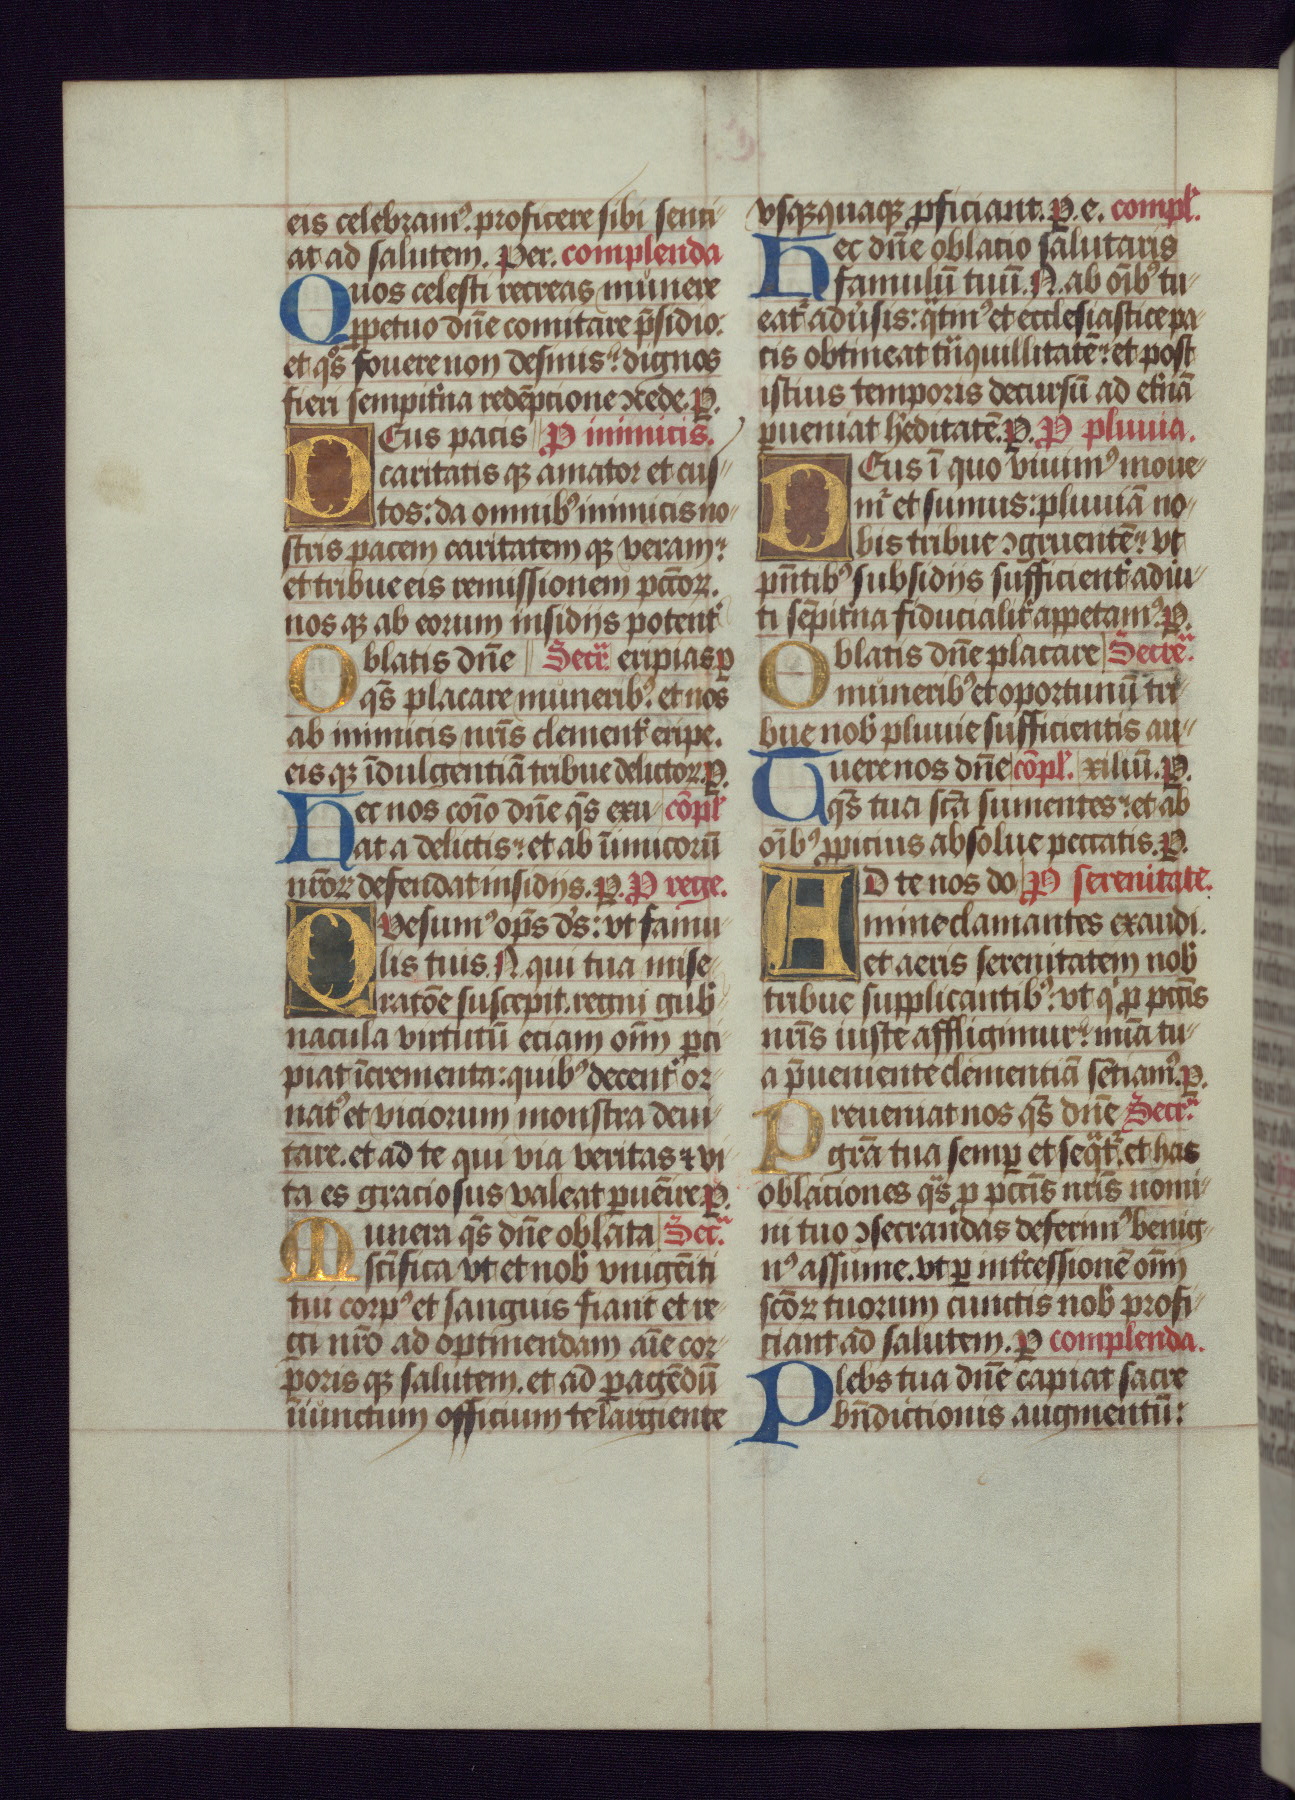 eis celebram⁹. proficere sibi senti-
at ad salutem. Per. complenda
Quos celesti recreas munere
ꝑpetuo dn̄e comitare p̄sidio.
et q̄s fouere non desinis: dignos
fieri sempit̄na redēptione ꝯcede. P.
DEus pacis P inimicis.
caritatis qꝫ amator et cus-
tos: da omnib⁹ inimicis no-
stris pacem caritatem qꝫ veram:
et tribue eis remissionem pccōꝝ.
nos qꝫ ab eorum insidijs potent̄
Oblatis dn̄e Secr̄. eripias P
q̄s placare munerib⁹. et nos
ab inimicis nr̄is clement̄ eripe.
eis qꝫ īdulgentiā tribue delictoꝝ. P.
Hec nos cōio dn̄e q̄s exu- cōpl̄
at a delictis: et ab inimicorū
nr̄oꝝ defendat insidijs. P. P rege.
QVesum⁹ op̄s d̄s: vt famu-
lis tuis. N. qui tua mise-
ratōe suscepit. regni gub̄-
nacula virtutū etiam om̄ ꝑci-
piat īcrementa: quib⁹ decent̄ or-
nat⁹ et viciorum monstra deui-
tare. et ad te qui via veritas ⁊ vi-
ta es graciosus valeat ꝑuēire. P.
Munera q̄s dn̄e oblata Secr̄.
sc̄ifica vt et nob̄ vnigēiti
tui corp⁹ et sanguis fiant et re-
gi nr̄o ad optinendam aīe cor-
poris qꝫ salutem. et ad ꝑagēdū
iniunctum officium te largiente
vsqꝫquaqꝫ ꝓficiant. P. e. compl̄.
Hec dn̄e oblatio salutaris
famulū tuū. N. ab oīb⁹ tu-
eat̄ adūsis: q̄tin⁹ et ecclesiastice pa-
cis obtineat trāquillitatē: et post
istius temporis decursū ad et̄nā
ꝑueniat h̄editatē. P. P pluuia.
DEus ī quo viuim⁹ moue-
m̄r et sumus: pluuiā no-
bis tribue ꝯgruentē: vt
pn̄tib⁹ subsidijs sufficient̄ adiu-
ti sēpit̄na fiducialit̄ appetam⁹. P.
Oblatis dn̄e placare Secre.
munerib⁹ et oportunū tri-
bue nob̄ pluuie sufficientis au-
Tuere nos dn̄e cōpl̄. xiliū. P.
q̄s tua sc̄a sumentes: et ab
oīb⁹ ꝓpicius absolue peccatis. P.
AD te nos do P serenitate.
mine clamantes exaudi.
et aeris serenitatem nob̄
tribue supplicantib⁹: vt q̄ ꝑ pccīs
nr̄is iuste affligimur: mīa tu-
a p̄ueniente clementiā sētiam⁹. P.
Preueniat nos q̄s dn̄e Secr̄.
gr̄a tua semꝑ et seq̄t̄. et has
oblationes q̄s ꝑ pccīs nr̄is nomi-
ni tuo ꝯsecrandas deferim⁹ benig-
n⁹ assume. vt ꝑ int̄cessionē om̄
sc̄oꝝ tuorum cunctis nob̄ profi-
ciant ad salutem. P complenda.
Plebs tua dn̄e capiat sacre
bn̄dictionis augmentū: